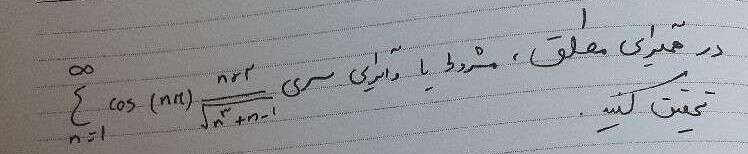 در همگرای مطلق، مشروط یا واگرای سری $\sum_{n=1}^{\infty} \cos(n\pi) \frac{n+2}{\sqrt{n^3+n-1}}$
تحقیق کنید.